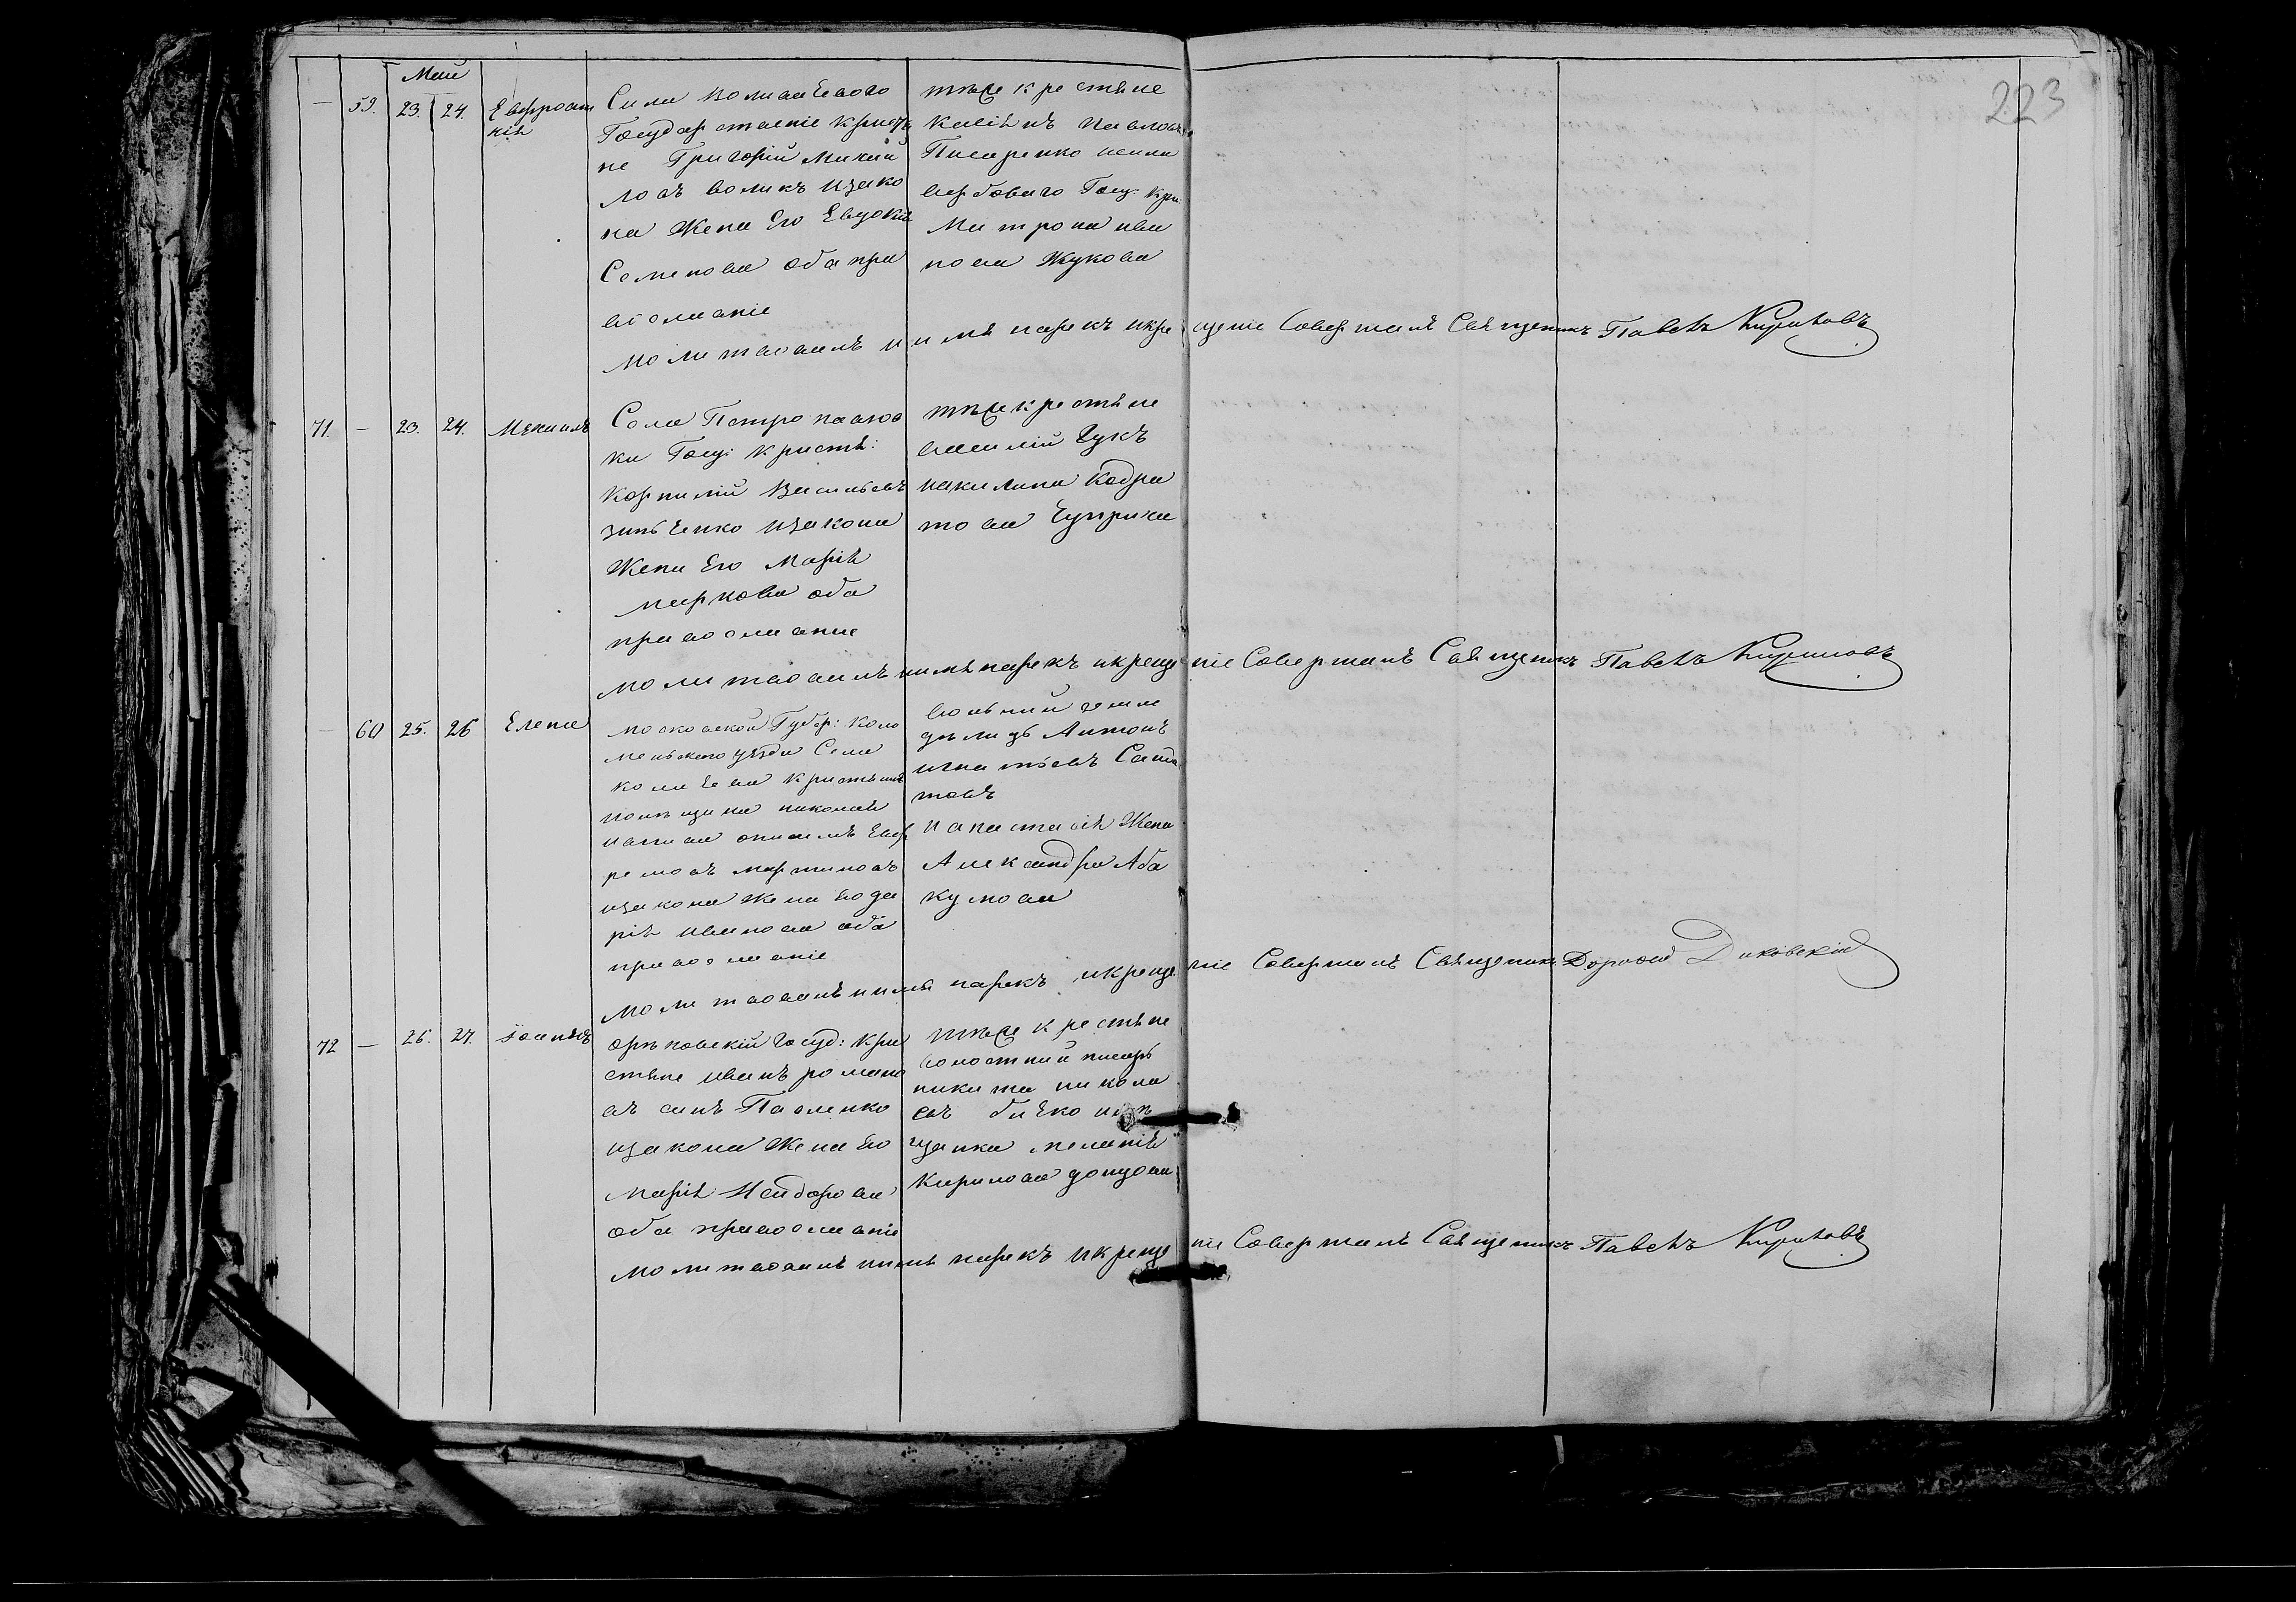 223
Май
59. 23. 24. Евфроси
нія
Сила Волначеваго
Государственіе кристя
не Григорій Михай
ловъ воликъ изако
на Жена Его Евдокія
Семенова оба пра
вославніе
тѣже крестяне
Касіянъ Павловъ
Писаренко исила
вербоваго Госу: кри
Матрона ива
нова Жукова
Молитвовалъ имя нарекъ икрещеніе Совершалъ Священикъ Павелъ Кириловъ
71. — 23. 24. Михаилъ
Села Петропавлов
ки Госу: кристя:
Корнилій Васильевъ
зинченко изакона
Жена Его Марія
маркова оба
православніе
тѣже крестяне
василій Чукъ
иакилина Кодра
това Чуприна
молитвовалъ имя нарекъ икрещеніе Совершалъ Священикъ Павелъ Кириловъ
— 60 25. 26 Елена
московской Губер: Коло
менского уезда Села
колычева кристянинъ
помещика николая
онисимъ Ефр
ремовъ мартиновъ
изакона жена Его да
рія иванова оба
православніе
антонъ
игнатьевъ
товъ
и анастасія Жена
Александра Аба
кумова
молитвовалъ имя нарекъ икрещеніе Совершалъ Священикъ Дорофей Диковскій
72 — 26. 27. Іоаннъ
орѣховскій Госуд: кри
стяне иванъ романо
въ синъ Павленко
изакона Жена Его
Марія Исидорова
оба православніе
тѣже крестяне
волостний писарь
никита никола
евъ
щанка меланія
Кирилова донцова
Молитвовалъ имя нарекъ икрещеніе Совершалъ Священикъ Павелъ Кириловъ